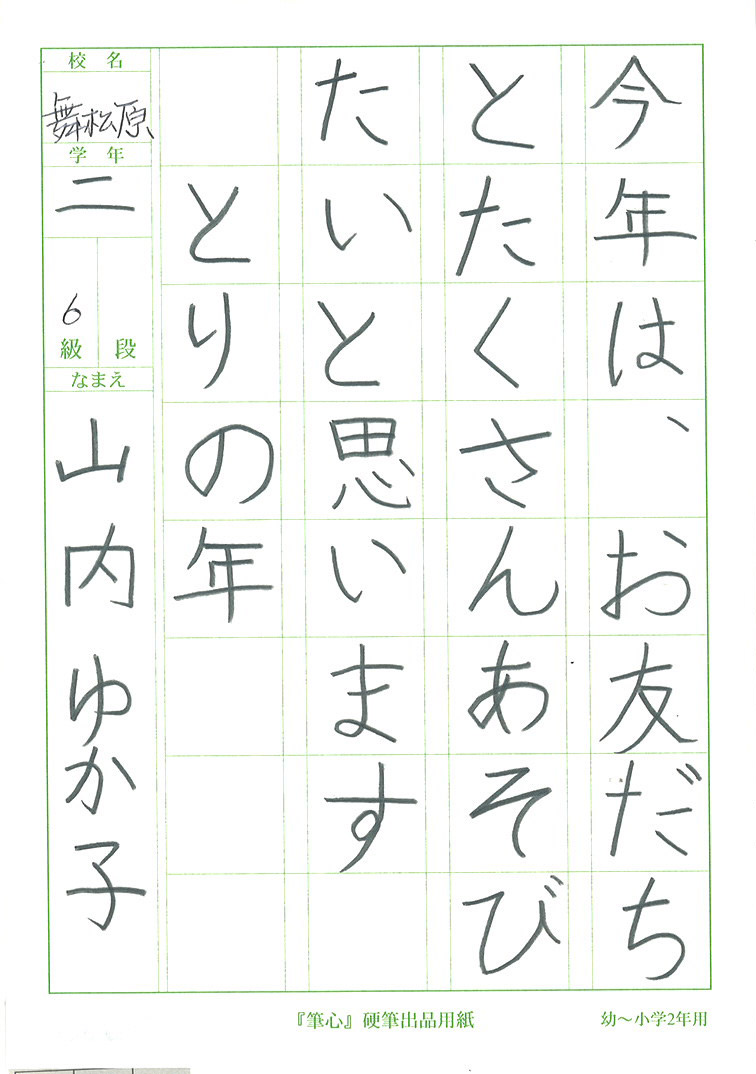 今年は、お友だち
とたくさんあそび
たいと思います
とりの年
校名
舞松原
学年
二
6
級 段
なまえ
山内ゆか子
『筆心』硬筆出品用紙
幼～小学2年用